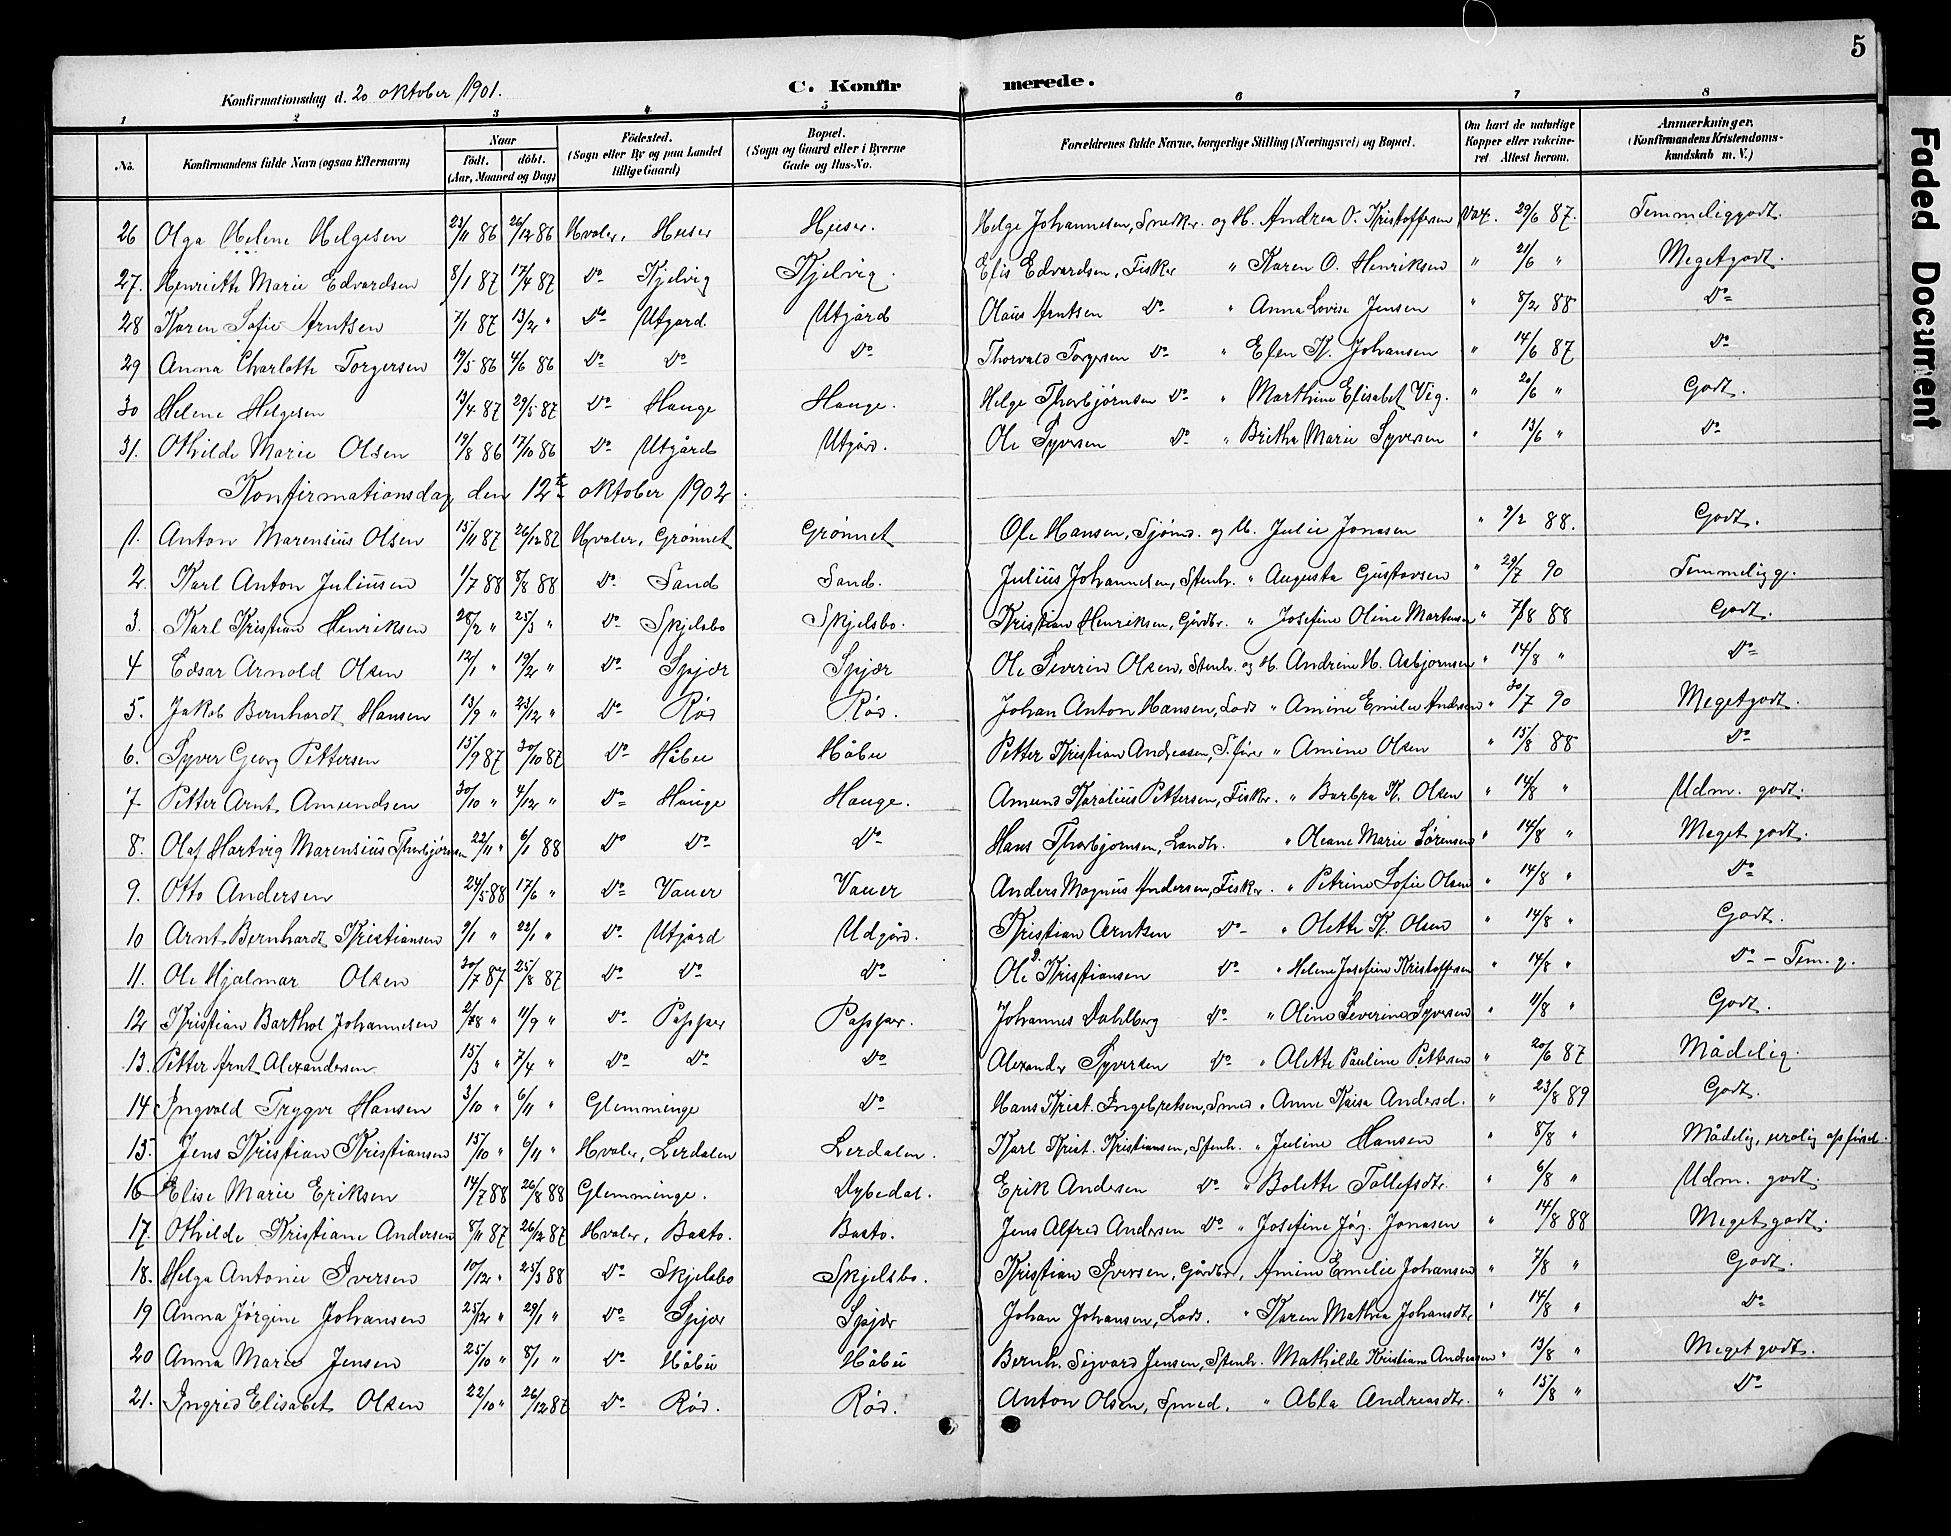 5
Konfirmationsdag d. 20 oktober 1901.
C. Konfirmerede.
1 2 3 4 5 6 7 8
No. Konfirmandens fulde Navn (ogsaa Efternavn) Naar födt. döbt. (Aar, Maaned og Dag) Födested. (Sogn eller By og paa Landet tillige Gaard) Bopæl. (Sogn og Gaard eller i Byerne Gade og Hus-No. Forældrenes fulde Navne, borgerlige Stilling (Næringsvei) og Bopæl. Om havt de naturlige Kopper eller vakcineret Attest herom. Anmærkninger. (Konfirmandens Kristendomskundskab m. V.)
26 Olga Helene Helgesen 23/11 86 26/12 86 Hvaler, Huser Huser. Helge Johannesen, Snedkr. og H. Andrea O. Kristoffersen Vax. 29/6 87. Temmeliggodt.
27. Henriette Marie Edvardsen 8/1 87 17/4 87 Do Kjelvig Kjelvig. Elis Edvardsen, Fisker " Karen O. Henriksen " 21/6 " Megetgodt.
28 Karen Sofie Arntsen 7/1 87 13/2 " Do Utgård Utgård Olaus Arntsen Do " Anna Lovise Jensen " 8/2 88 Do
29 Anna Charlotte Torgersen 19/5 86 4/6 86 Do Do Do Thorvald Torgersen Do " Elen K. Johansen " 14/6 87 Do
30 Helene Helgesen 13/4 87 29/5 87 Do Hauge Hauge. Helge Thorbjørnsen Do " Marthine Elisabet Vig. " 20/6 " Godt.
31. Othilde Marie Olsen 19/8 86 17/10 86 Do Utgård Utgård. Ole Syversen Do " Brithe Marie Syversen " 13/6 " Do
Konfirmationsdag den 12te oktober 1902.
1. Anton Marensius Olsen 15/11 87 26/12 87 Hvaler, Grønnet Grønnet Ole Hansen, Sjømd. og H. Julie Jonasen " 9/2 88. Godt.
2. Karl Anton Juliusen 1/7 88 8/8 88 Do Sand Sand. Julius Johannesen, Stenh. " Augusta Gustavsen " 29/7 90 Temmelig g.
3. Karl Kristian Henriksen 28/2 " 25/3 " Do Skjelsbo Skjelsbo. Kristian Henriksen, Gårdbr. " Josefine Oline Martensen " 7/8 88 Godt.
4 Edvar Arnold Olsen 12/1 " 19/2 " Do Spjær Spjær Ole Severin Olsen, Stenh. og H. Andrine H. Asbjørnsen " 14/8 " Do
5. Jakob Bernhardt Hansen 13/9 " 23/12 " Do Rød Rød. Johan Anton Hansen, Lods " Amine Emilie Andersen " 30/7 90 Megetgodt.
6. Syver Georg Pettersen 15/9 87 30/10 87 Do Håbu Håbu Petter Kristian Andreasen, S.fører " Amine Olsen " 15/8 88 Do
7 Petter Arnt Amundsen 30/10 " 4/12 " Do Hauge Hauge. Amund Karolius Pettersen, Fisker. " Barbra K. Olsen " 14/8 " Udm. godt.
8. Olaf Hartvig Marensius Thorbjørnsen 22/11 " 6/1 88 Do Do Do Hans Thorbjørnsen, Landh. " Oleane Marie Sørensen " 14/8 " Meget godt.
9. Otto Andersen 24/5 88 17/6 " Do Vauer Vauer Anders Magnus Andersen, Fisker. " Petrine Sofie Olsen " 14/8 " Do
10 Arnt Bernhardt Kristiansen 9/1 " 22/1 " Do Utgård Udgård. Kristian Arntsen Do " Olette K. Olsen " 14/8 " Godt.
11. Ole Hjalmar Olsen 30/7 87 25/8 87 Do Do Do Ole Kristiansen Do " Helene Josefine Kristoffersen " 14/8 " Do – Tem. g.
12 Kristian Barthol Johannesen 2/8 " 11/9 " Do Papper Papper. Johannes Dahlberg Do " Oline Severine Syversen " 11/8 " Godt.
13. Petter Arnt Alexandersen 15/3 " 7/4 " Do Do Do Alexander Syversen Do " Olette Pauline Pettersen " 20/6 87 Mådelig.
14 Ingvald Trygve Hansen 3/10 " 6/11 " Glemminge Do Hans Krist. Ingebretsen, Smed " Anne Kaisa Andersd. " 23/8 89 Godt.
15. Jens Kristian Kristiansen 15/10 " 6/11 " Hvaler, Lerdalen Lerdalen. Karl Krist. Kristiansen, Stenh. " Juline Hansen " 8/8 " Mådelig, urolig opførsel.
16 Elise Marie Eriksen 14/7 88 26/8 88 Glemminge. Dybedal. Erik Andersen Do " Bolette Tollefsdtr. " 6/8 " Udm. godt.
17. Othilde Kristiane Andersen 8/11 87 26/12 87 Hvaler, Basto. Basto. Jens Alfred Andersen Do " Josefine Jørg. Jonasen " 14/8 88 Megetgodt.
18. Helga Antonie Iversen 10/12 " 25/3 88 Do Skjelsbo Skjelsbo. Kristian Iversen, Gårdbr, Amine Emilie Johansen " 7/8 " Godt.
19 Anna Jørgine Johansen 25/12 " 29/1 " Do Spjær Spjær Johan Johansen, Lods. " Karen Mathea Johansdtr. " 14/8 " Do
20 Anna Marie Jensen 25/10 " 8/1 " Do Håbu Håbu Bernh. Sigvard Jensen, Stenh. Mathilde Kristiane Andreasen " 13/8 " Meget godt.
21. Ingrid Elisabet Olsen 22/10 " 26/12 87 Do Rød. Rød. Anton Olsen, Smed. " Abla Andreasdtr. " 15/8 " Do
Faded Document